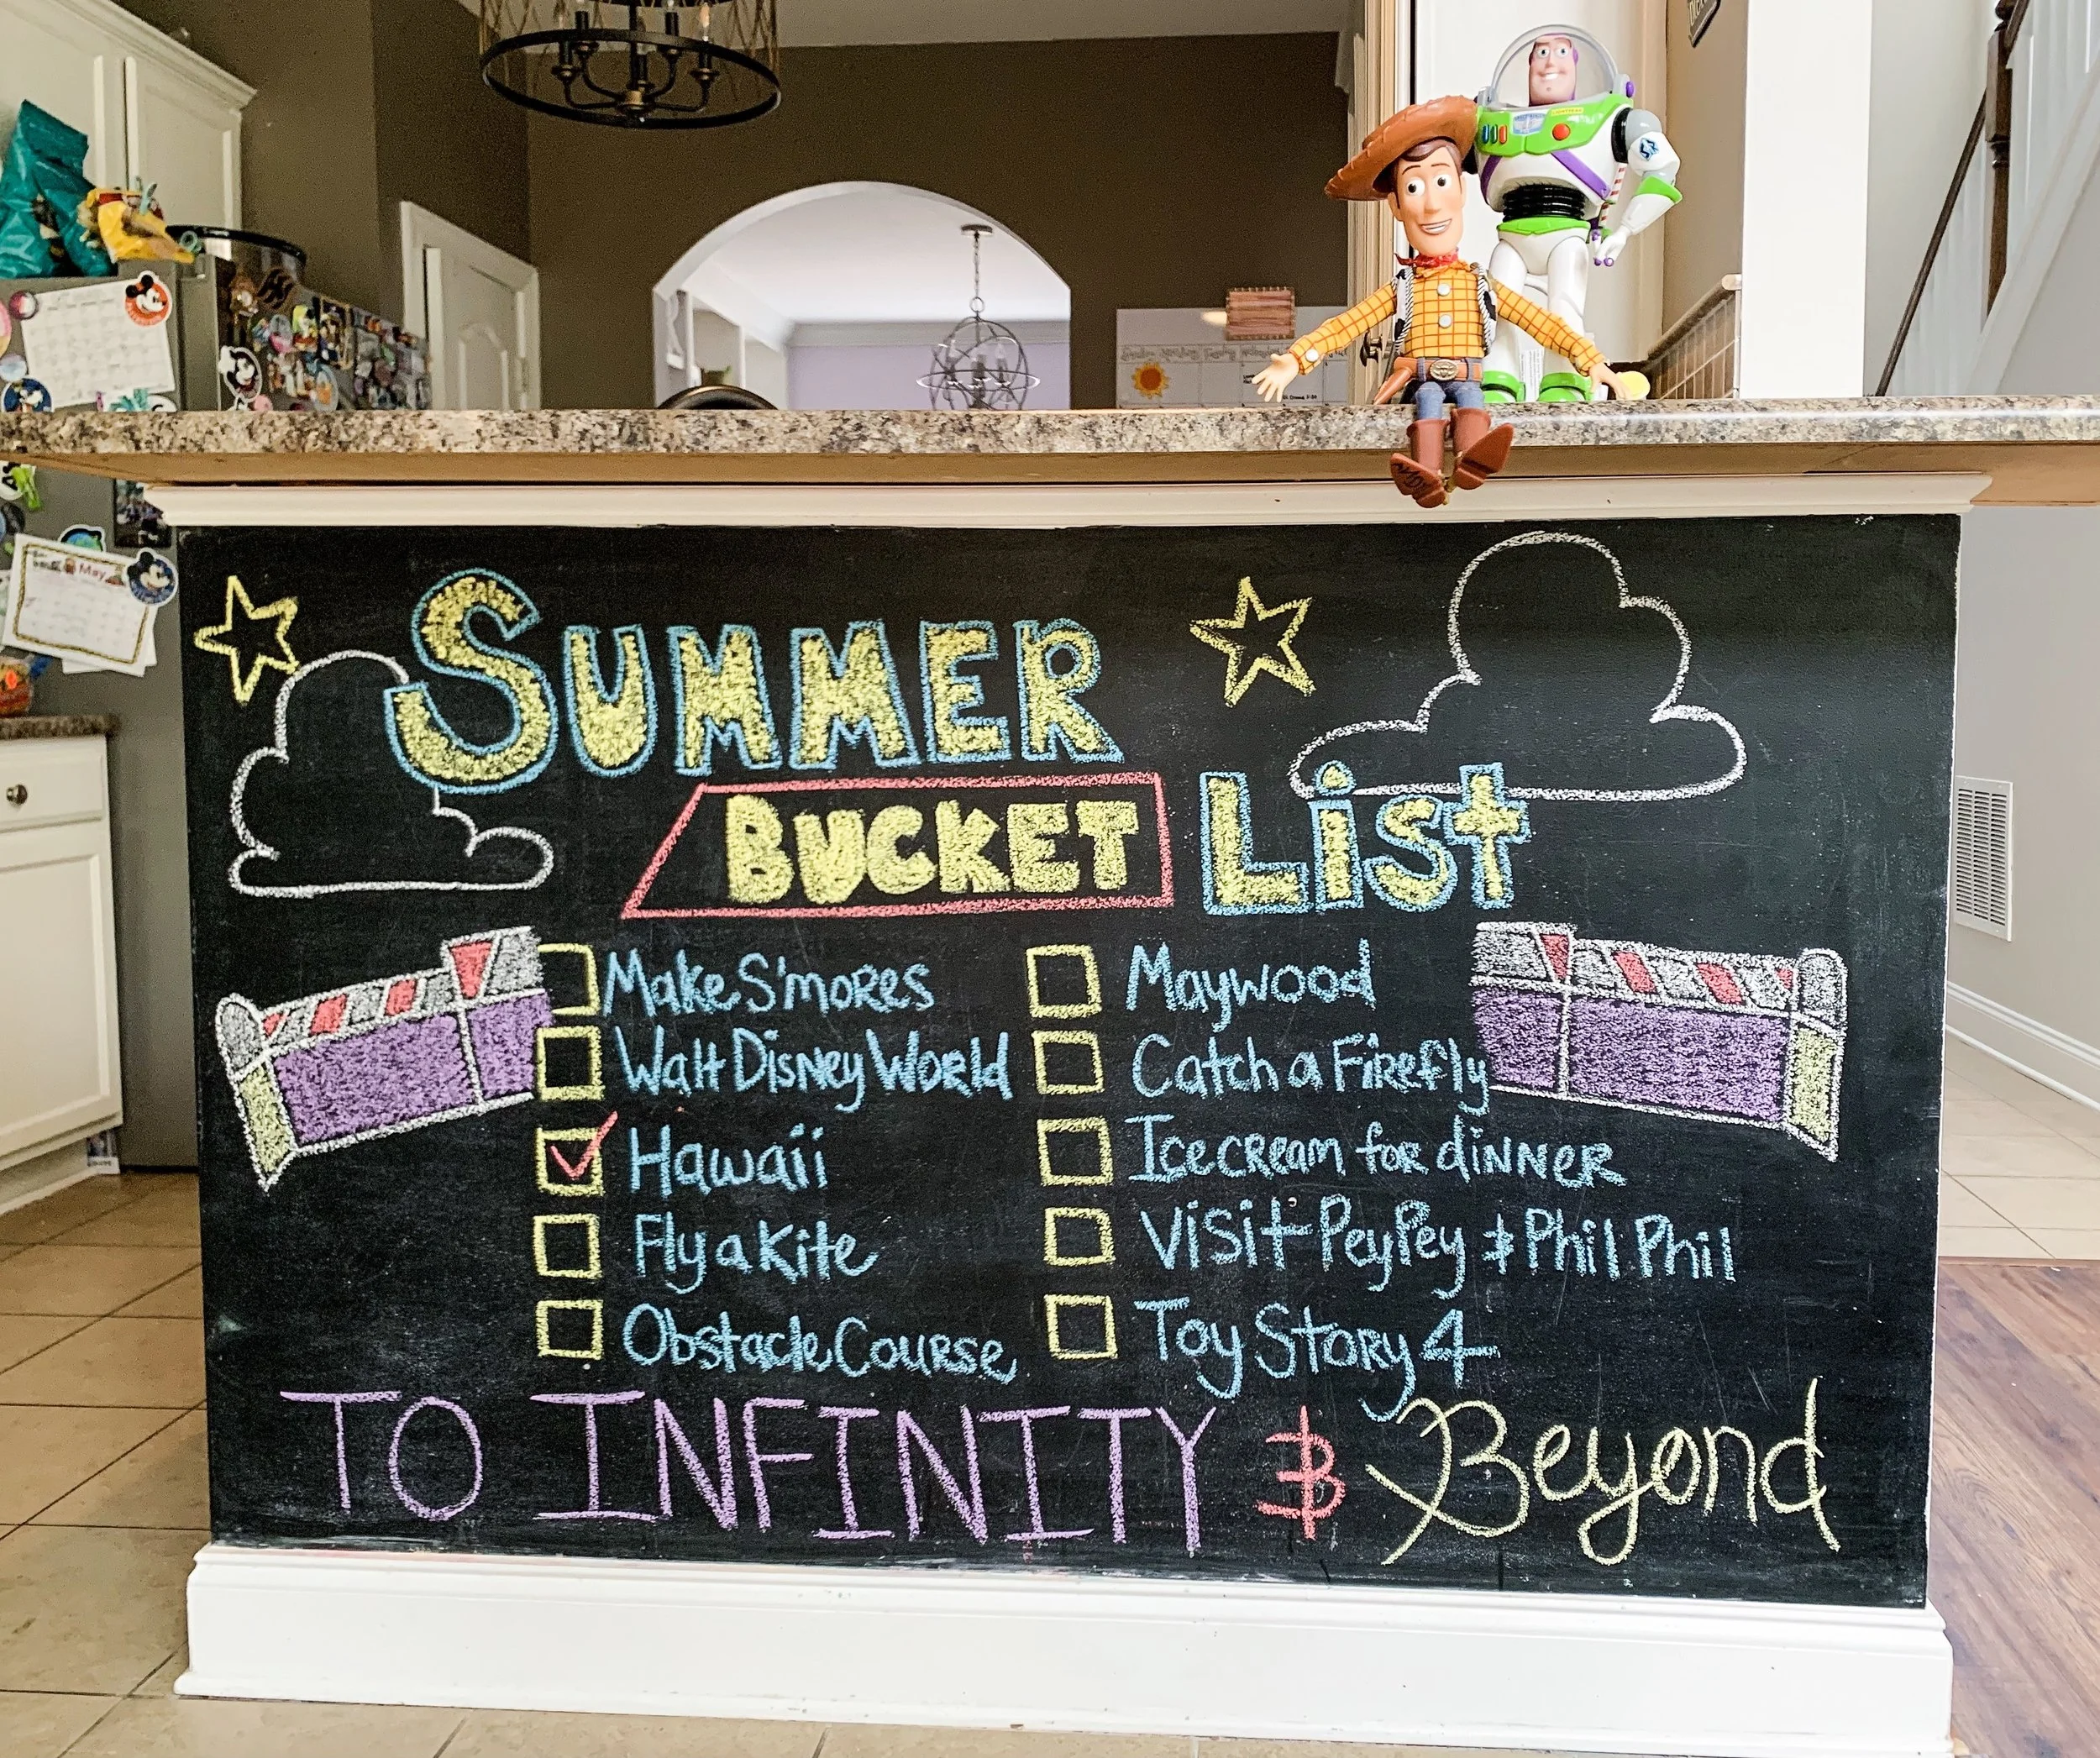 SUMMER
BUCKET List
Make S'mores
Walt Disney World
Hawaii
Fly a Kite
Obstacle Course
Maywood
Catch a Firefly
Ice cream for dinner
Visit PeyPey & Phil Phil
Toy Story 4
TO INFINITY & Beyond
May